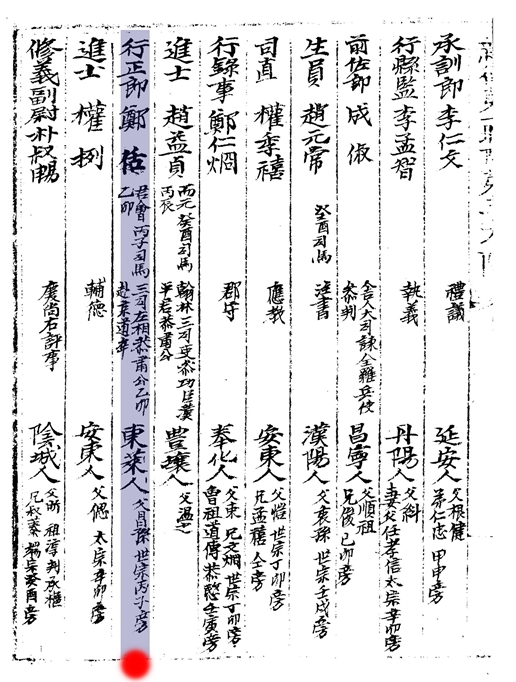 承訓郎 李仁文 禮議 延安人 父根健 弟仁忠 甲申旁
行縣監 李孟智 執義 丹陽人 父科 妻父任孝信 太宗辛卯旁
前佐郎 成俶 舍人大司諫全羅兵使 參判 昌寧人 父順祖 兄俊 己卯旁
生員 趙元常 癸酉司馬 注書 漢陽人 父衷孫 世宗壬戌旁
司直 權季禧 應教 安東人 父愷 世宗丁卯旁 兄孟禧 仝旁
行錄事 鄭仁烱 郡守 奉化人 父束 兄文烱 世宗丁卯旁 曾祖道傳 恭愍壬寅旁
進士 趙益貞 而元 癸酉司馬 丙辰 翰林三司吏參功臣漢 平君恭肅公 豊壤人 父溫之
行正郎 鄭佸 君會 丙子司馬 乙卯 三司左相恭肅公乙卯 赴京道卒 東萊人 父昌孫 世宗丙子旁
進士 權捌 輔德 安東人 父偲 太宗辛卯旁
修義副尉 朴叔暢 慶尙右評事 陰城人 父昕 祖淳 判承樞 兄叔蓁 端宗癸酉旁